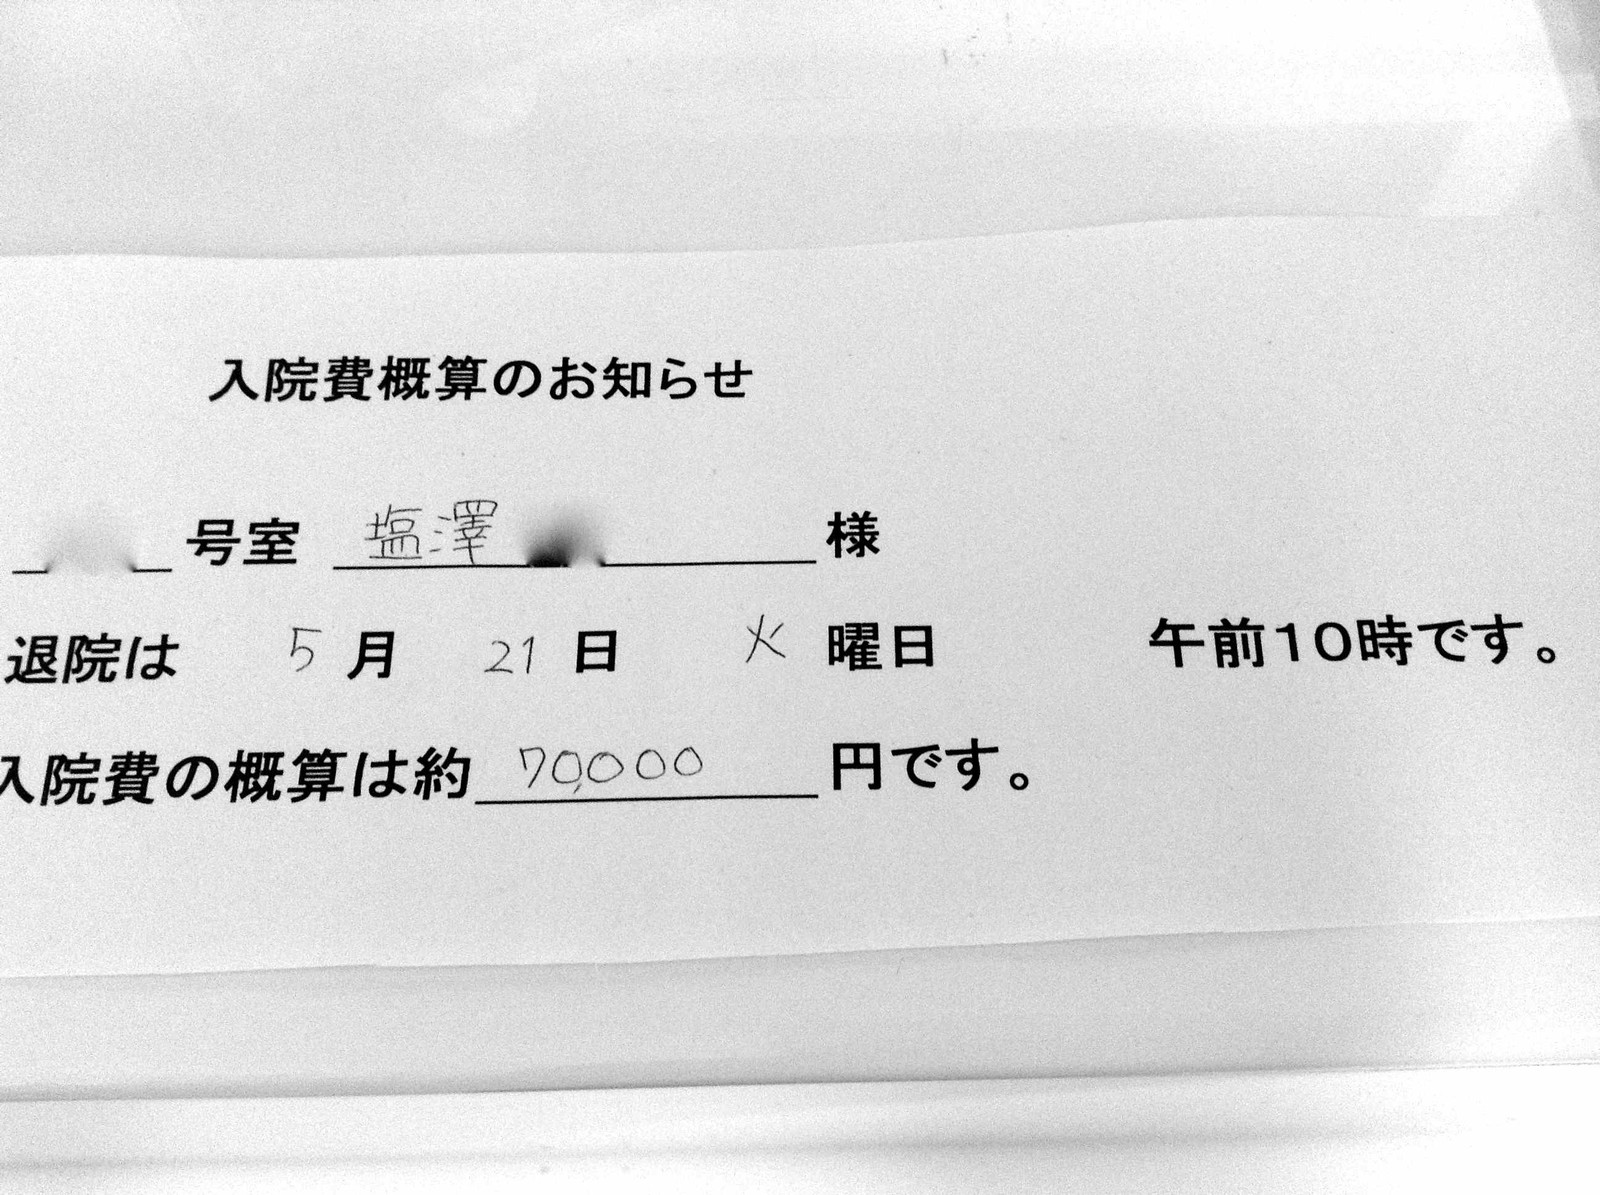 入院費概算のお知らせ
号室 塩澤 様
退院は 5月 21日 火曜日 午前10時です。
入院費の概算は約 70,000 円です。